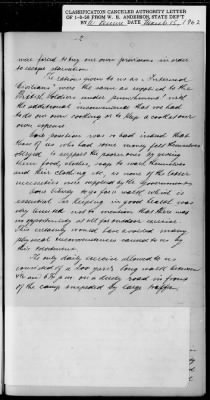 CLASSIFICATION CANCELLED AUTHORITY LETTER
OF 1-8-58 FROM W. H. ANDERSON, STATE DEP'T
1962
2
were forced to buy our own provisions in order
to escape starvation.
The rations given to us as "Interned
Civilians" were the same as supplied to the
British Soldiers under punishment! with
the additional inconvenience that we had
to do our own cooking or to keep a cook at our
own expense.
Our position was so bad indeed that
those of us who had some money felt themselves
obliged to support the poor ones by giving
them food, clothes, soap to wash themselves
and their clothing etc., as none of the lesser
necessities were supplied by the Government.
Our liberty to go for a walk which is
essential for keeping in good health was
very limited not to mention that there was
no opportunity at all for outdoor exercise.
This creamery would have avoided many
physical inconveniences caused to us by
this treatment.
The only daily exercise allowed to us
consisted of a 200 yards long walk between
and 6½ p.m. on a dusty road in front
of the camp